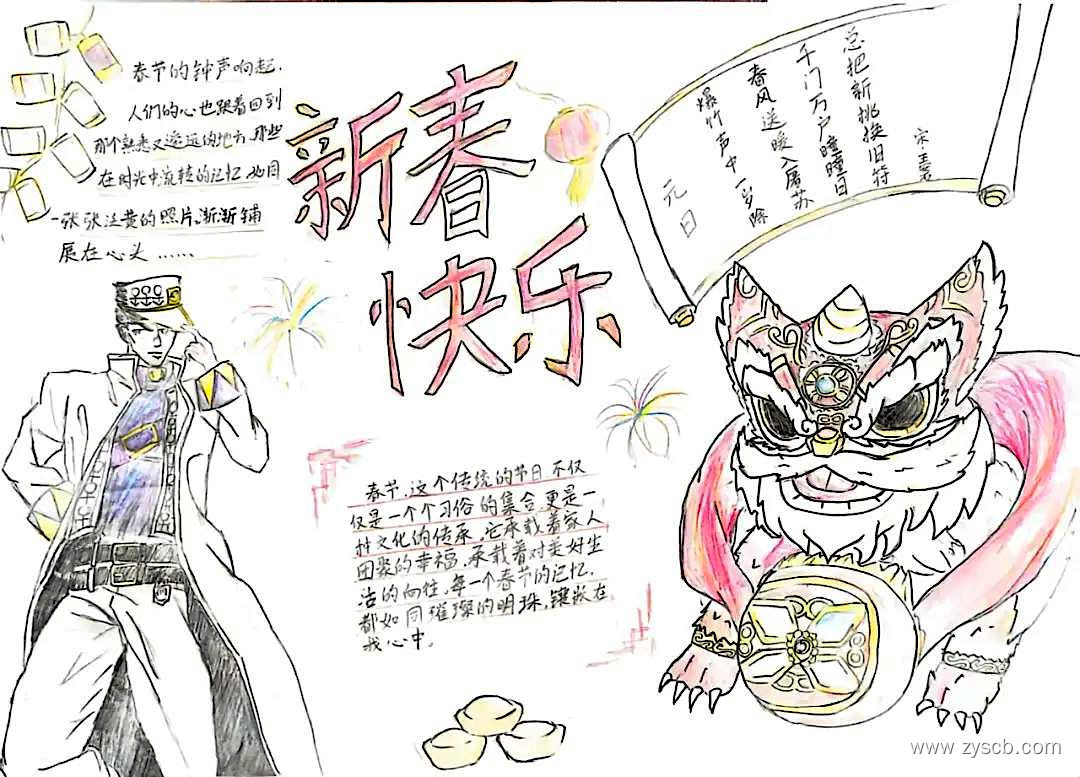 春节的钟声响起.
人们的心也跟着回到
那个熟悉又遥远的地方.那些
在时光中流转的记忆,如同
一张张泛黄的照片,渐渐铺
展在心头……
新春
快乐
元日
宋 王安石
爆竹声中一岁除
春风送暖入屠苏
千门万户曈曈日
总把新桃换旧符
春节,这个传统的节日不仅
仅是一个个习俗的集合,更是一
种文化的传承,它承载着家人
团聚的幸福,承载着对美好生
活的向往,每一个春节的记忆,
都如同璀璨的明珠,镶嵌在
我心中.
www.zyscb.com